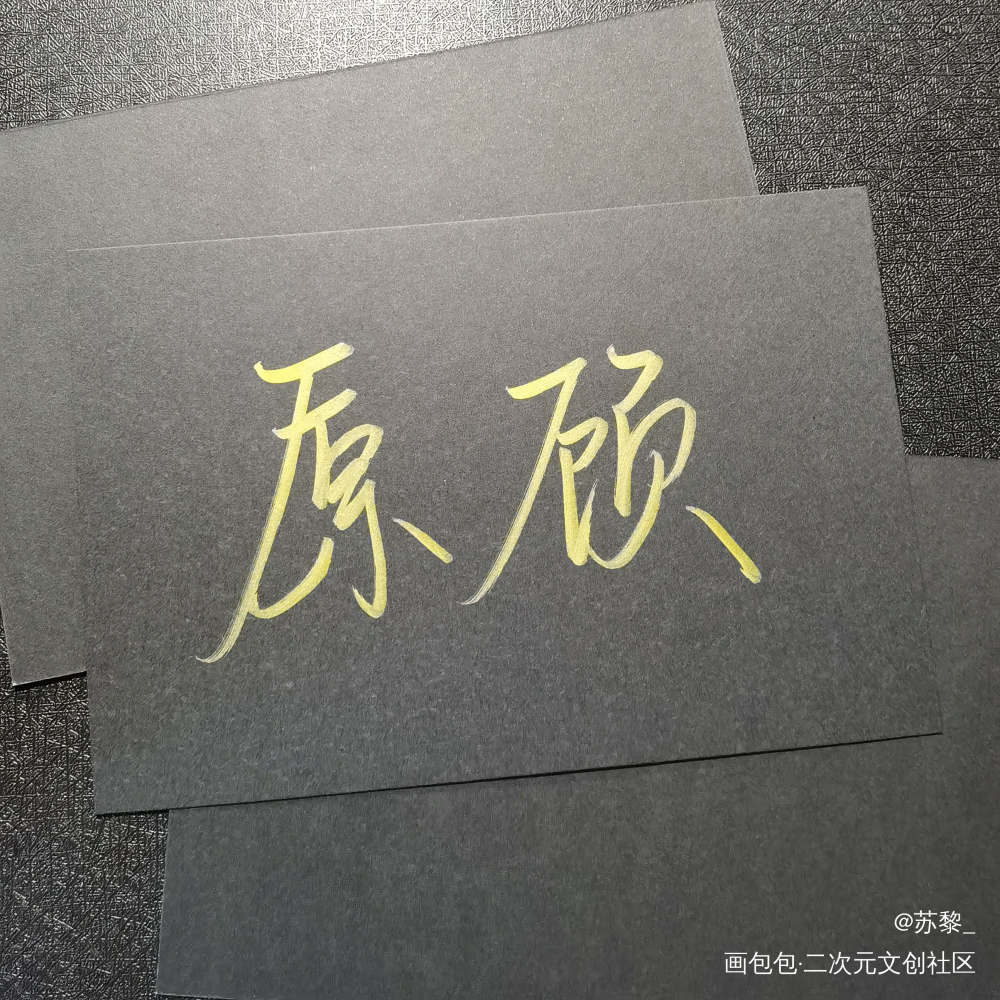 原顾
@苏黎_
画包包·二次元文创社区